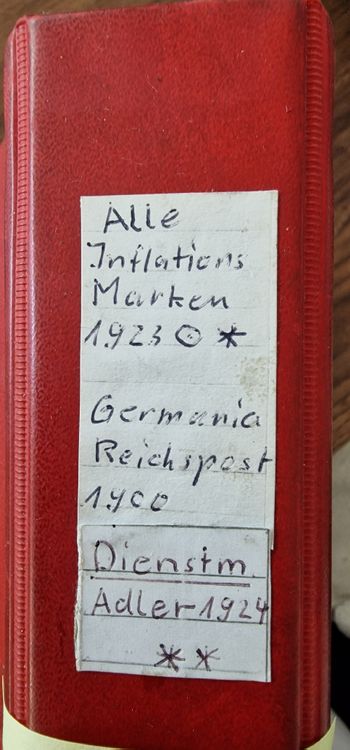 Alle
Inflations
Marken
1923 ⊙ *
Germania
Reichspost
1900
Dienstm.
Adler-1924
* *